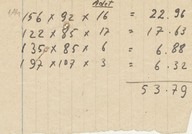 156 × 92 × 16 = 22.96
122 × 85 × 17 = 17.63
135 × 85 × 6 = 6.88
197 × 107 × 3 = 6.32
53.79